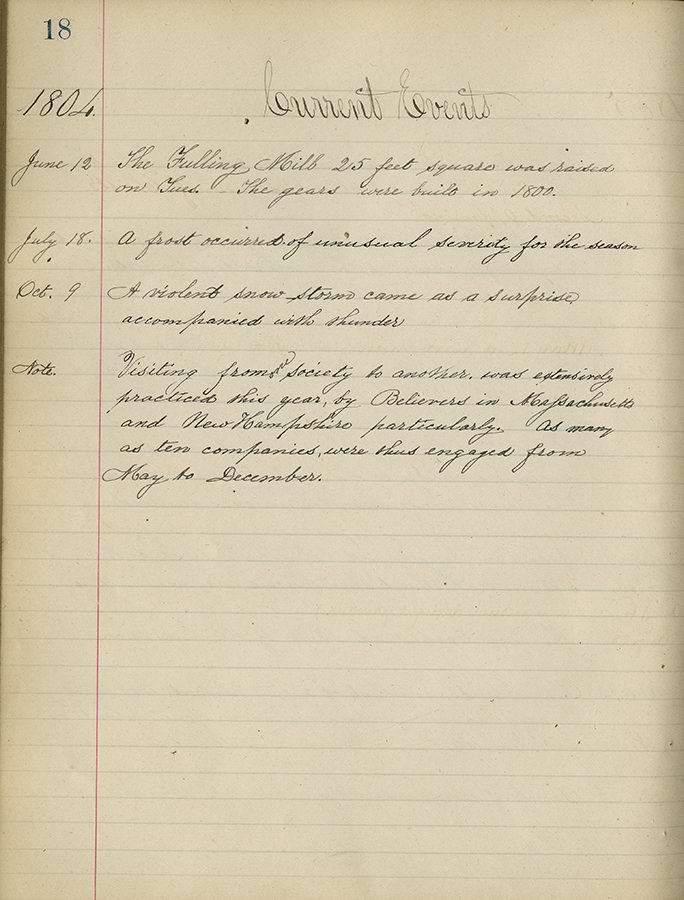 18
1804. Current Events
June 12 The Fulling Mill 25 feet square was raised
on Tues. – The gears were built in 1800.
July 18. A frost occurred of unusual severity for the season
Oct. 9 A violent snow storm came as a surprise,
accompanied with thunder
Note. Visiting from society to another, was extensively
practiced this year, by Believers in Massachusetts
and New Hampshire particularly. As many
as ten companies, were thus engaged from
May to December.